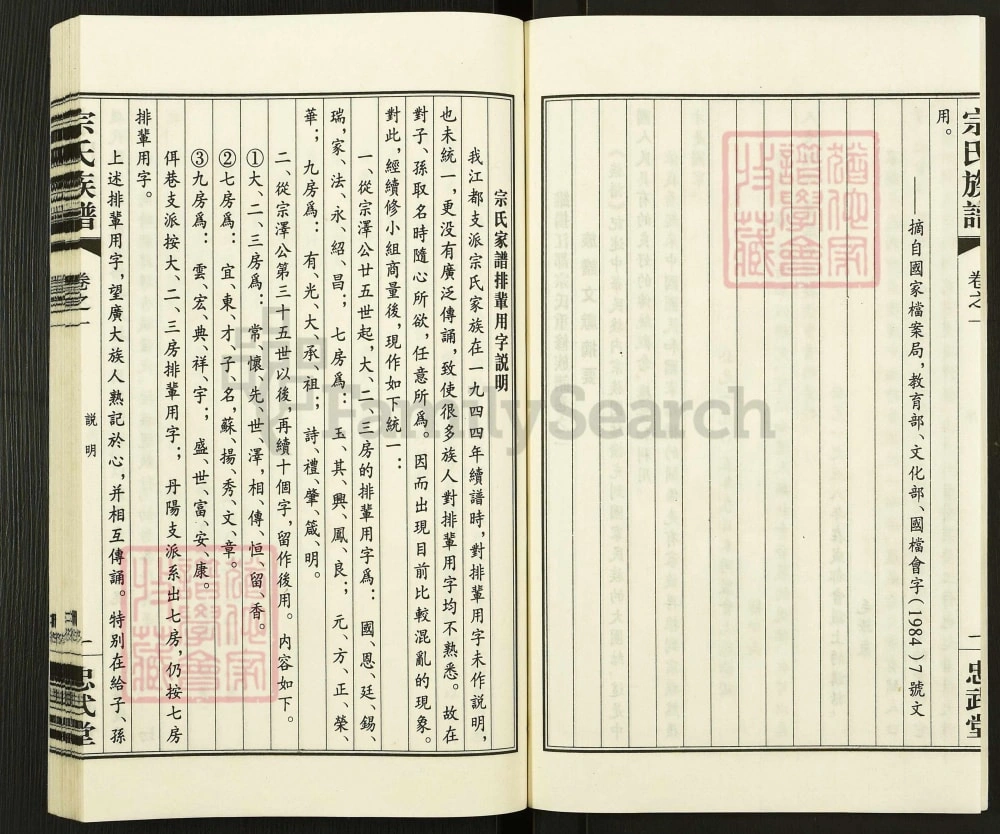 宗氏族譜
卷之一
二
忠武堂
用。
——摘自國家檔案局，教育部、文化部、國檔會字(1984)7號文
宗氏家譜排輩用字説明
我江都支派宗氏家族在一九四四年續譜時，對排輩用字未作説明，
也未統一，更没有廣泛傳誦，致使很多族人對排輩用字均不熟悉。故在
對子、孫取名時隨心所欲，任意所爲。因而出現目前比較混亂的現象。
對此，經續修小組商量後，現作如下統一：
一、從宗澤公廿五世起，大、二、三房的排輩用字爲：國、恩、廷、錫、
瑞，家、法、永、紹、昌；七房爲：玉、其、興、鳳、良；元、方、正、榮、
華；九房爲：有、光、大、承、祖；詩、禮、肇、箴、明。
二、從宗澤公第三十五世以後，再續十個字，留作後用。内容如下。
①大、二、三房爲：常、懷、先、世、澤，相、傳、恒、留、香。
②七房爲：宜、東、才、子、名，蘇、揚、秀、文、章。
③九房爲：雲、宏、典、祥、宇；盛、世、富、安、康。
佴巷支派按大、二、三房排輩用字；丹陽支派系出七房，仍按七房
排輩用字。
上述排輩用字，望廣大族人熟記於心，并相互傳誦。特别在給子、孫
宗氏族譜
卷之一
説明
二
忠武堂
FamilySearch